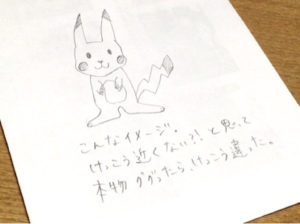 こんなイメージ。
けっこう近くない?!と思って
本物ググったら、けっこう違った。